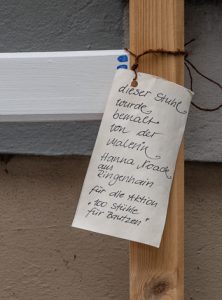 dieser Stuhl
wurde
bemalt
von der
Malerin
Hanna Noack
aus
Ringenhain
für die Aktion
"100 Stühle
für Bautzen"